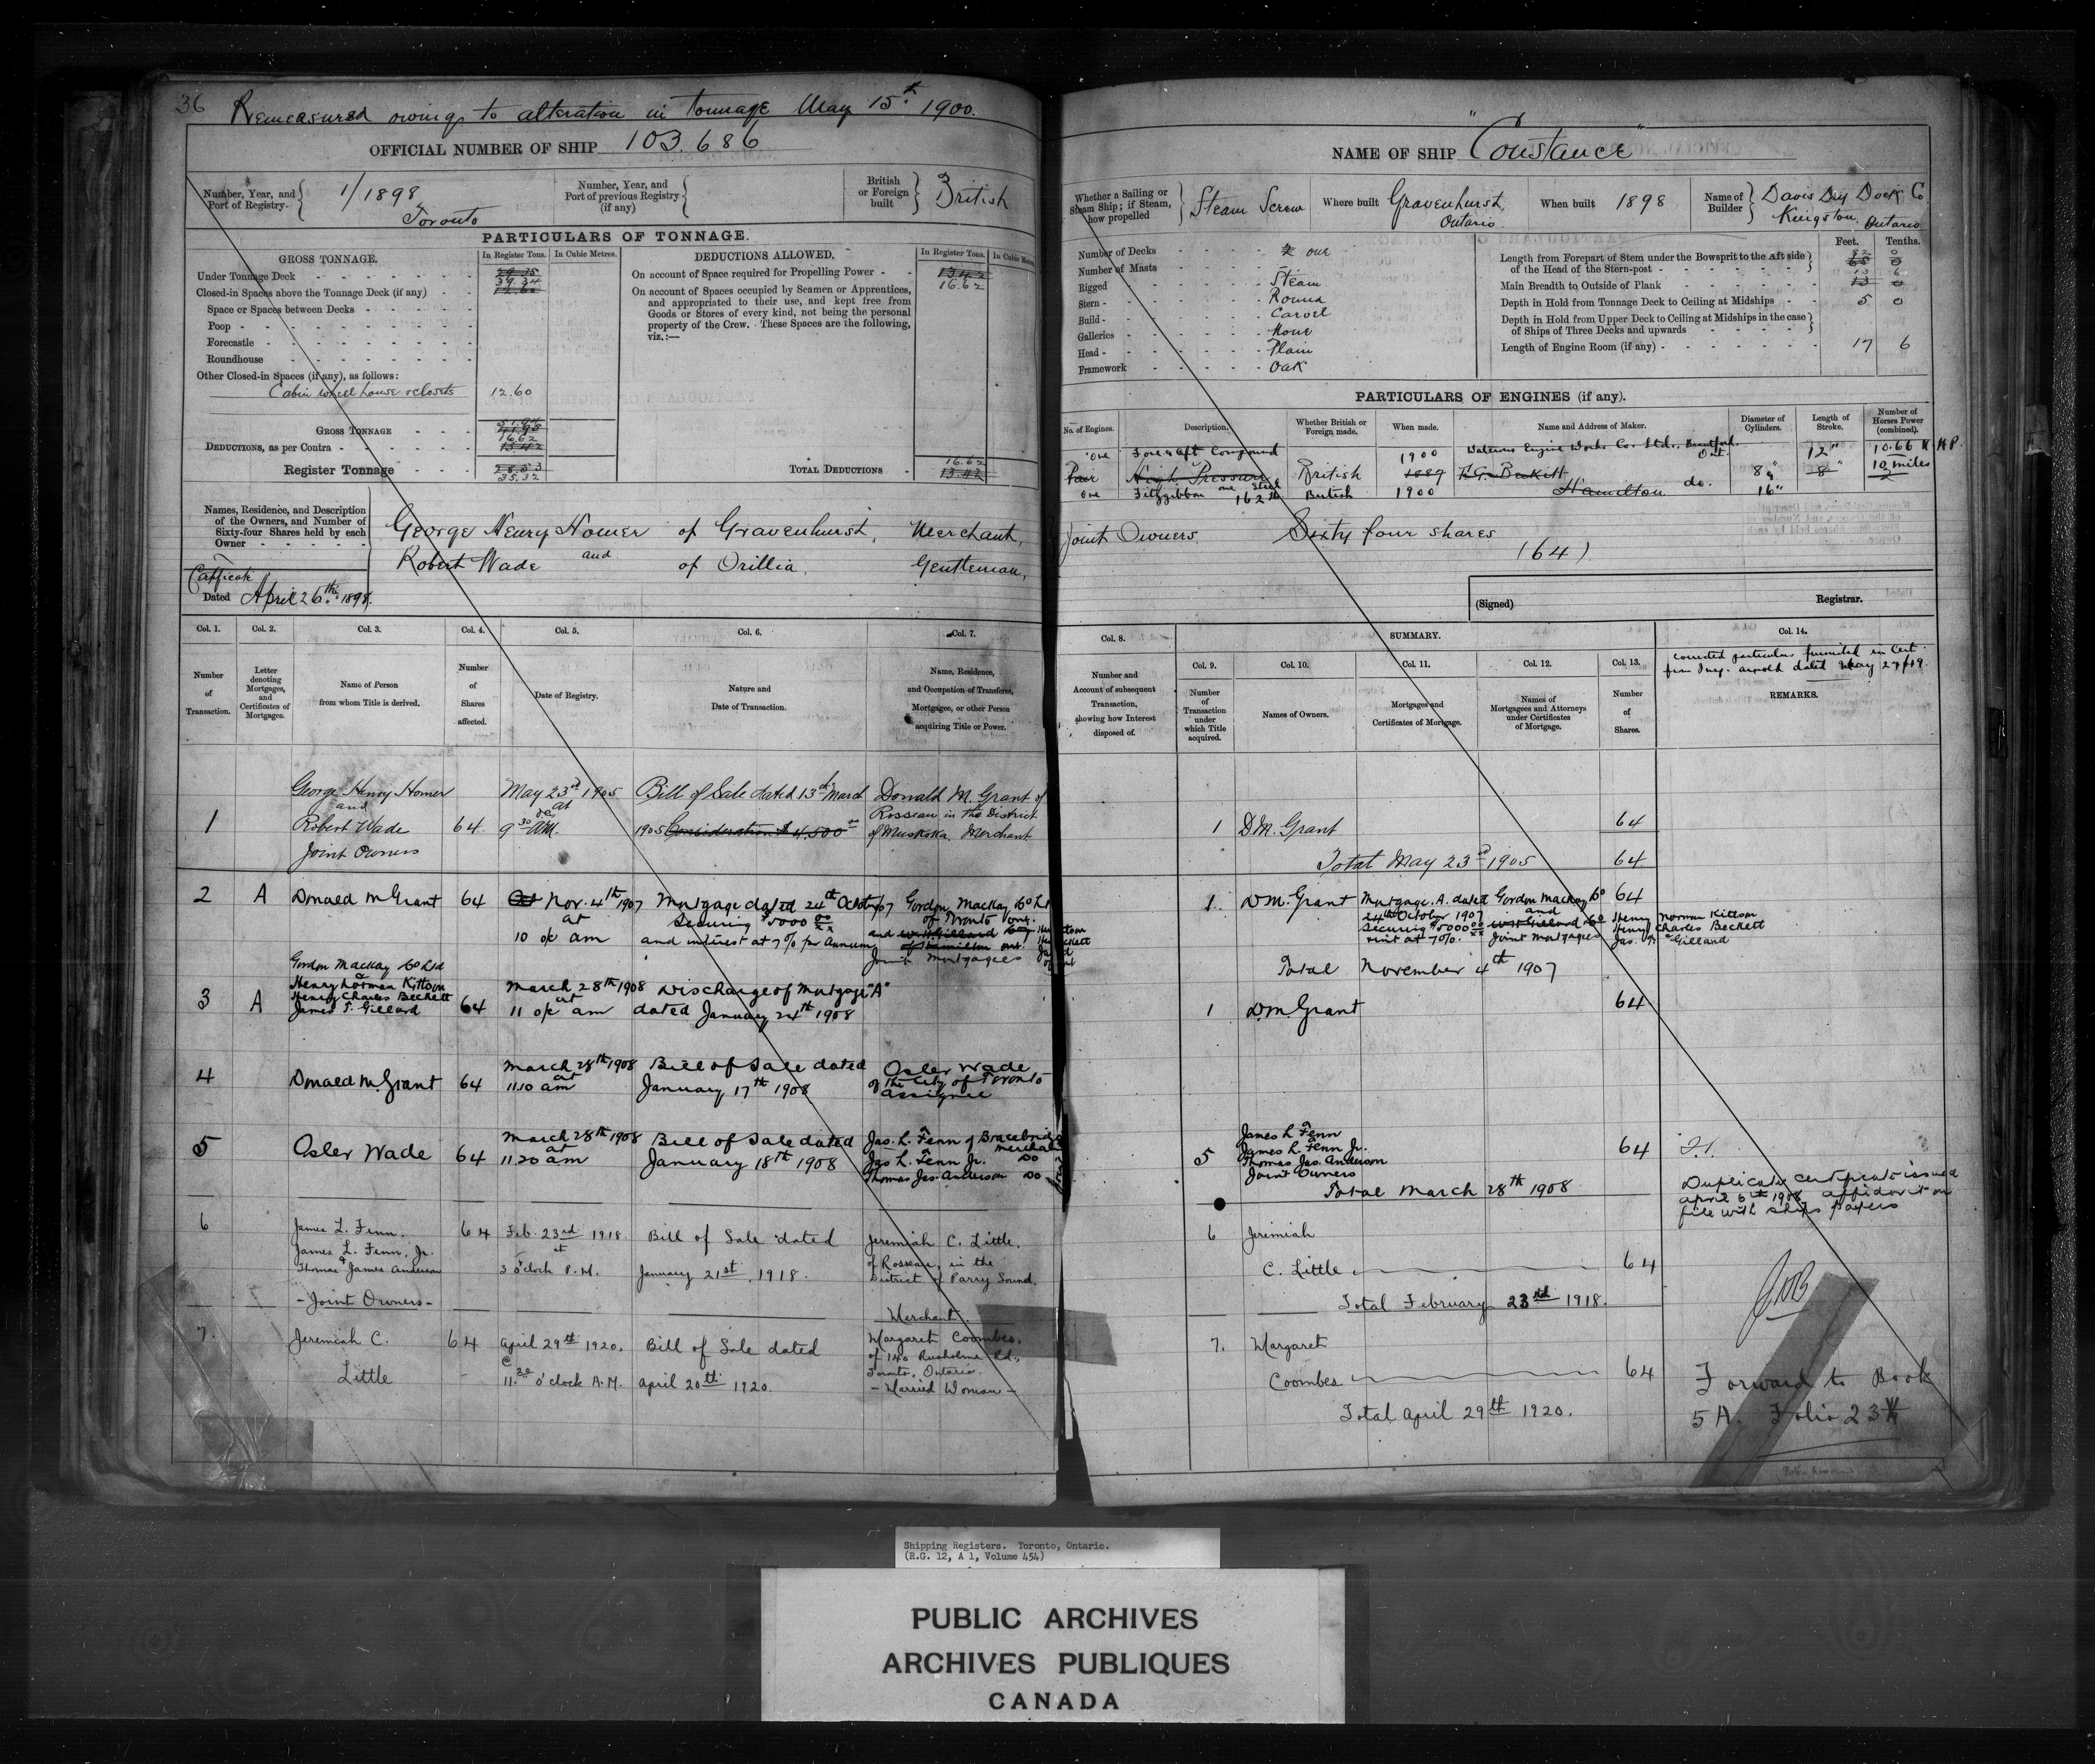 36 Remeasured owing to alteration in Tonnage May 15th 1900.
OFFICIAL NUMBER OF SHIP 103.686
Number, Year, and Port of Registry 1/1898 Toronto
Number, Year, and Port of previous Registry (if any)
British or Foreign built British
PARTICULARS OF TONNAGE.
GROSS TONNAGE. In Register Tons. In Cubic Metres.
Under Tonnage Deck 39.34
Closed-in Spaces above the Tonnage Deck (if any)
Space or Spaces between Decks
Poop
Forecastle
Roundhouse
Other Closed-in Spaces (if any), as follows:
Cabin wheel house & closets 12.60
GROSS TONNAGE
DEDUCTIONS, as per Contra 16.62 13.42
Register Tonnage 28.53 35.32
DEDUCTIONS ALLOWED. In Register Tons. In Cubic Metres
On account of Space required for Propelling Power 13.42 16.62
On account of Spaces occupied by Seamen or Apprentices,
and appropriated to their use, and kept free from
Goods or Stores of every kind, not being the personal
property of the Crew. These Spaces are the following,
viz.:—
TOTAL DEDUCTIONS 16.62 13.42
Names, Residence, and Description
of the Owners, and Number of
Sixty-four Shares held by each
Owner
George Henry Homer of Gravenhurst, Merchant,
and
Robert Wade of Orillia, Gentleman,
Certificate
Dated April 26th 1898.
NAME OF SHIP "Constance"
Whether a Sailing or Steam Ship; if Steam, how propelled Steam Screw
Where built Gravenhurst, Ontario
When built 1898
Name of Builder Davis Dry Dock Co Kingston, Ontario
Number of Decks one
Number of Masts -
Rigged Steam
Stern Round
Build Carvel
Galleries None
Head Plain
Framework Oak
Feet. Tenths.
Length from Forepart of Stem under the Bowsprit to the Aft side of the Head of the Stern-post 82 0 65 0
Main Breadth to Outside of Plank 13 6 13 0
Depth in Hold from Tonnage Deck to Ceiling at Midships 5 0
Depth in Hold from Upper Deck to Ceiling at Midships in the case of Ships of Three Decks and upwards
Length of Engine Room (if any) 17 6
PARTICULARS OF ENGINES (if any).
No. of Engines. Description. Whether British or Foreign made. When made. Name and Address of Maker. Diameter of Cylinders. Length of Stroke. Number of Horses Power (combined).
One Fore & Aft Compound 1900 Waterous Engine Works Co. Ltd. Brantford. Ont. 12" 10.66 N.H.P.
Pair High Pressure British 1887 8" 8" 10 miles
one Fitzgibbon one Steel 162 lb British 1900 Hamilton do. 16"
Joint Owners Sixty four shares
(64)
(Signed) Registrar.
Col. 1. Col. 2. Col. 3. Col. 4. Col. 5. Col. 6. Col. 7.
Number of Transaction.
Letter denoting Mortgages, and Certificates of Mortgages.
Name of Person from whom Title is derived.
Number of Shares affected.
Date of Registry.
Nature and Date of Transaction.
Name, Residence, and Occupation of Transferee, Mortgagee, or other Person acquiring Title or Power.
Col. 8. SUMMARY. Col. 14.
Col. 9. Col. 10. Col. 11. Col. 12. Col. 13.
Number and Account of subsequent Transaction, showing how Interest disposed of.
Number of Transaction under which Title acquired.
Names of Owners.
Mortgages and Certificates of Mortgage.
Names of Mortgagees and Attorneys under Certificates of Mortgage.
Number of Shares.
corrected particulars furnished in Cert.
from Insp. Arnold dated May 27/19.
REMARKS.
1 George Henry Homer and Robert Wade Joint Owners 64 May 23rd 1905 at 9 30 oc AM. Bill of Sale dated 13th March 1905 Consideration $4,500 00 Donald M. Grant of Rosseau in the District of Muskoka Merchant
2 A Donald M Grant 64 Oct Nov. 4th 1907 at 10 o/c am Mortgage dated 24th October/07 Securing $5000 00/xx and interest at 7% per annum Gordon Mackay Co Ltd of Toronto Ont. and W H Gillard Co of Hamilton Ont. Joint Mortgagees
3 A Gordon Mackay Co Ltd & Henry Norman Kittson Henry Charles Beckett James T. Gillard 64 March 28th 1908 at 11 o/c am Discharge of Mortgage "A" dated January 24th 1908
4 Donald M Grant 64 March 28th 1908 at 11.10 am Bill of Sale dated January 17th 1908 Osler Wade of the City of Toronto Assignee
5 Osler Wade 64 March 28th 1908 at 11.20 am Bill of Sale dated January 18th 1908 Jas. L. Fenn of Bracebridge Merchant Jas L. Fenn Jr. Do Thomas Jas. Anderson Do
6 James L. Fenn. James L. Fenn, Jr. & Thomas James Anderson - Joint Owners - 64 Feb. 23rd 1918. at 3 o'clock P.M. Bill of Sale dated January 21st, 1918. Jeremiah C. Little, of Rosseau, in the District of Parry Sound. Merchant.
7. Jeremiah C. Little 64 April 29th 1920. @ 11.20 o'clock A.M. Bill of Sale dated April 20th 1920. Margaret Coombes, of 140 Rusholme Rd., Toronto, Ontario. - Married Woman -
1 D.M. Grant 64
Total May 23rd 1905 64
1. D M. Grant Mortgage. A. dated 24th October 1907 Securing $5000 00/xx & int at 7%. Gordon Mackay Co and W H Gillard Co Joint Mortgagees 64 Henry Norman Kittson Henry Charles Beckett Jas. T. Gillard
Total November 4th 1907
1 D.M. Grant 64
5 James L Fenn James L. Fenn Jr. Thomas Jas. Anderson Joint Owners 64
Total March 28th 1908
Duplicate certificate issued
April 6th 1908 affidavit on
file with ships papers
6 Jeremiah
C. Little 64
Total February 23rd 1918.
7. Margaret
Coombes 64
Total April 29th 1920.
Forward to Book
5 A. Folio 23
Shipping Registers. Toronto, Ontario.
(R.G. 12, A 1, Volume 454)
PUBLIC ARCHIVES
ARCHIVES PUBLIQUES
CANADA